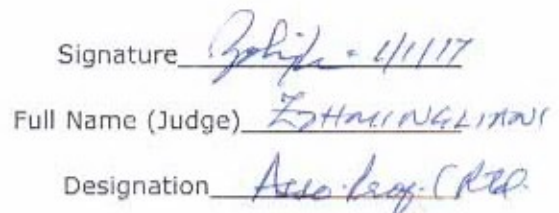 Signature 1/1/17
Full Name (Judge) ZOHMINGLIANI
Designation Asso. Prof. (RTD.